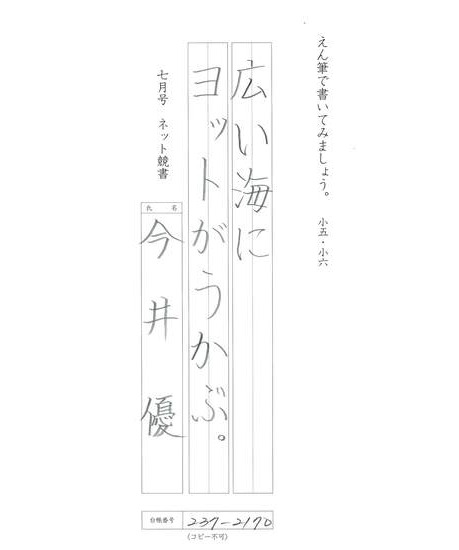 えん筆で書いてみましょう。 小五・小六
広い海に
ヨットがうかぶ。
七月号 ネット競書
氏名
今井優
台帳番号 237-2170
(コピー不可)